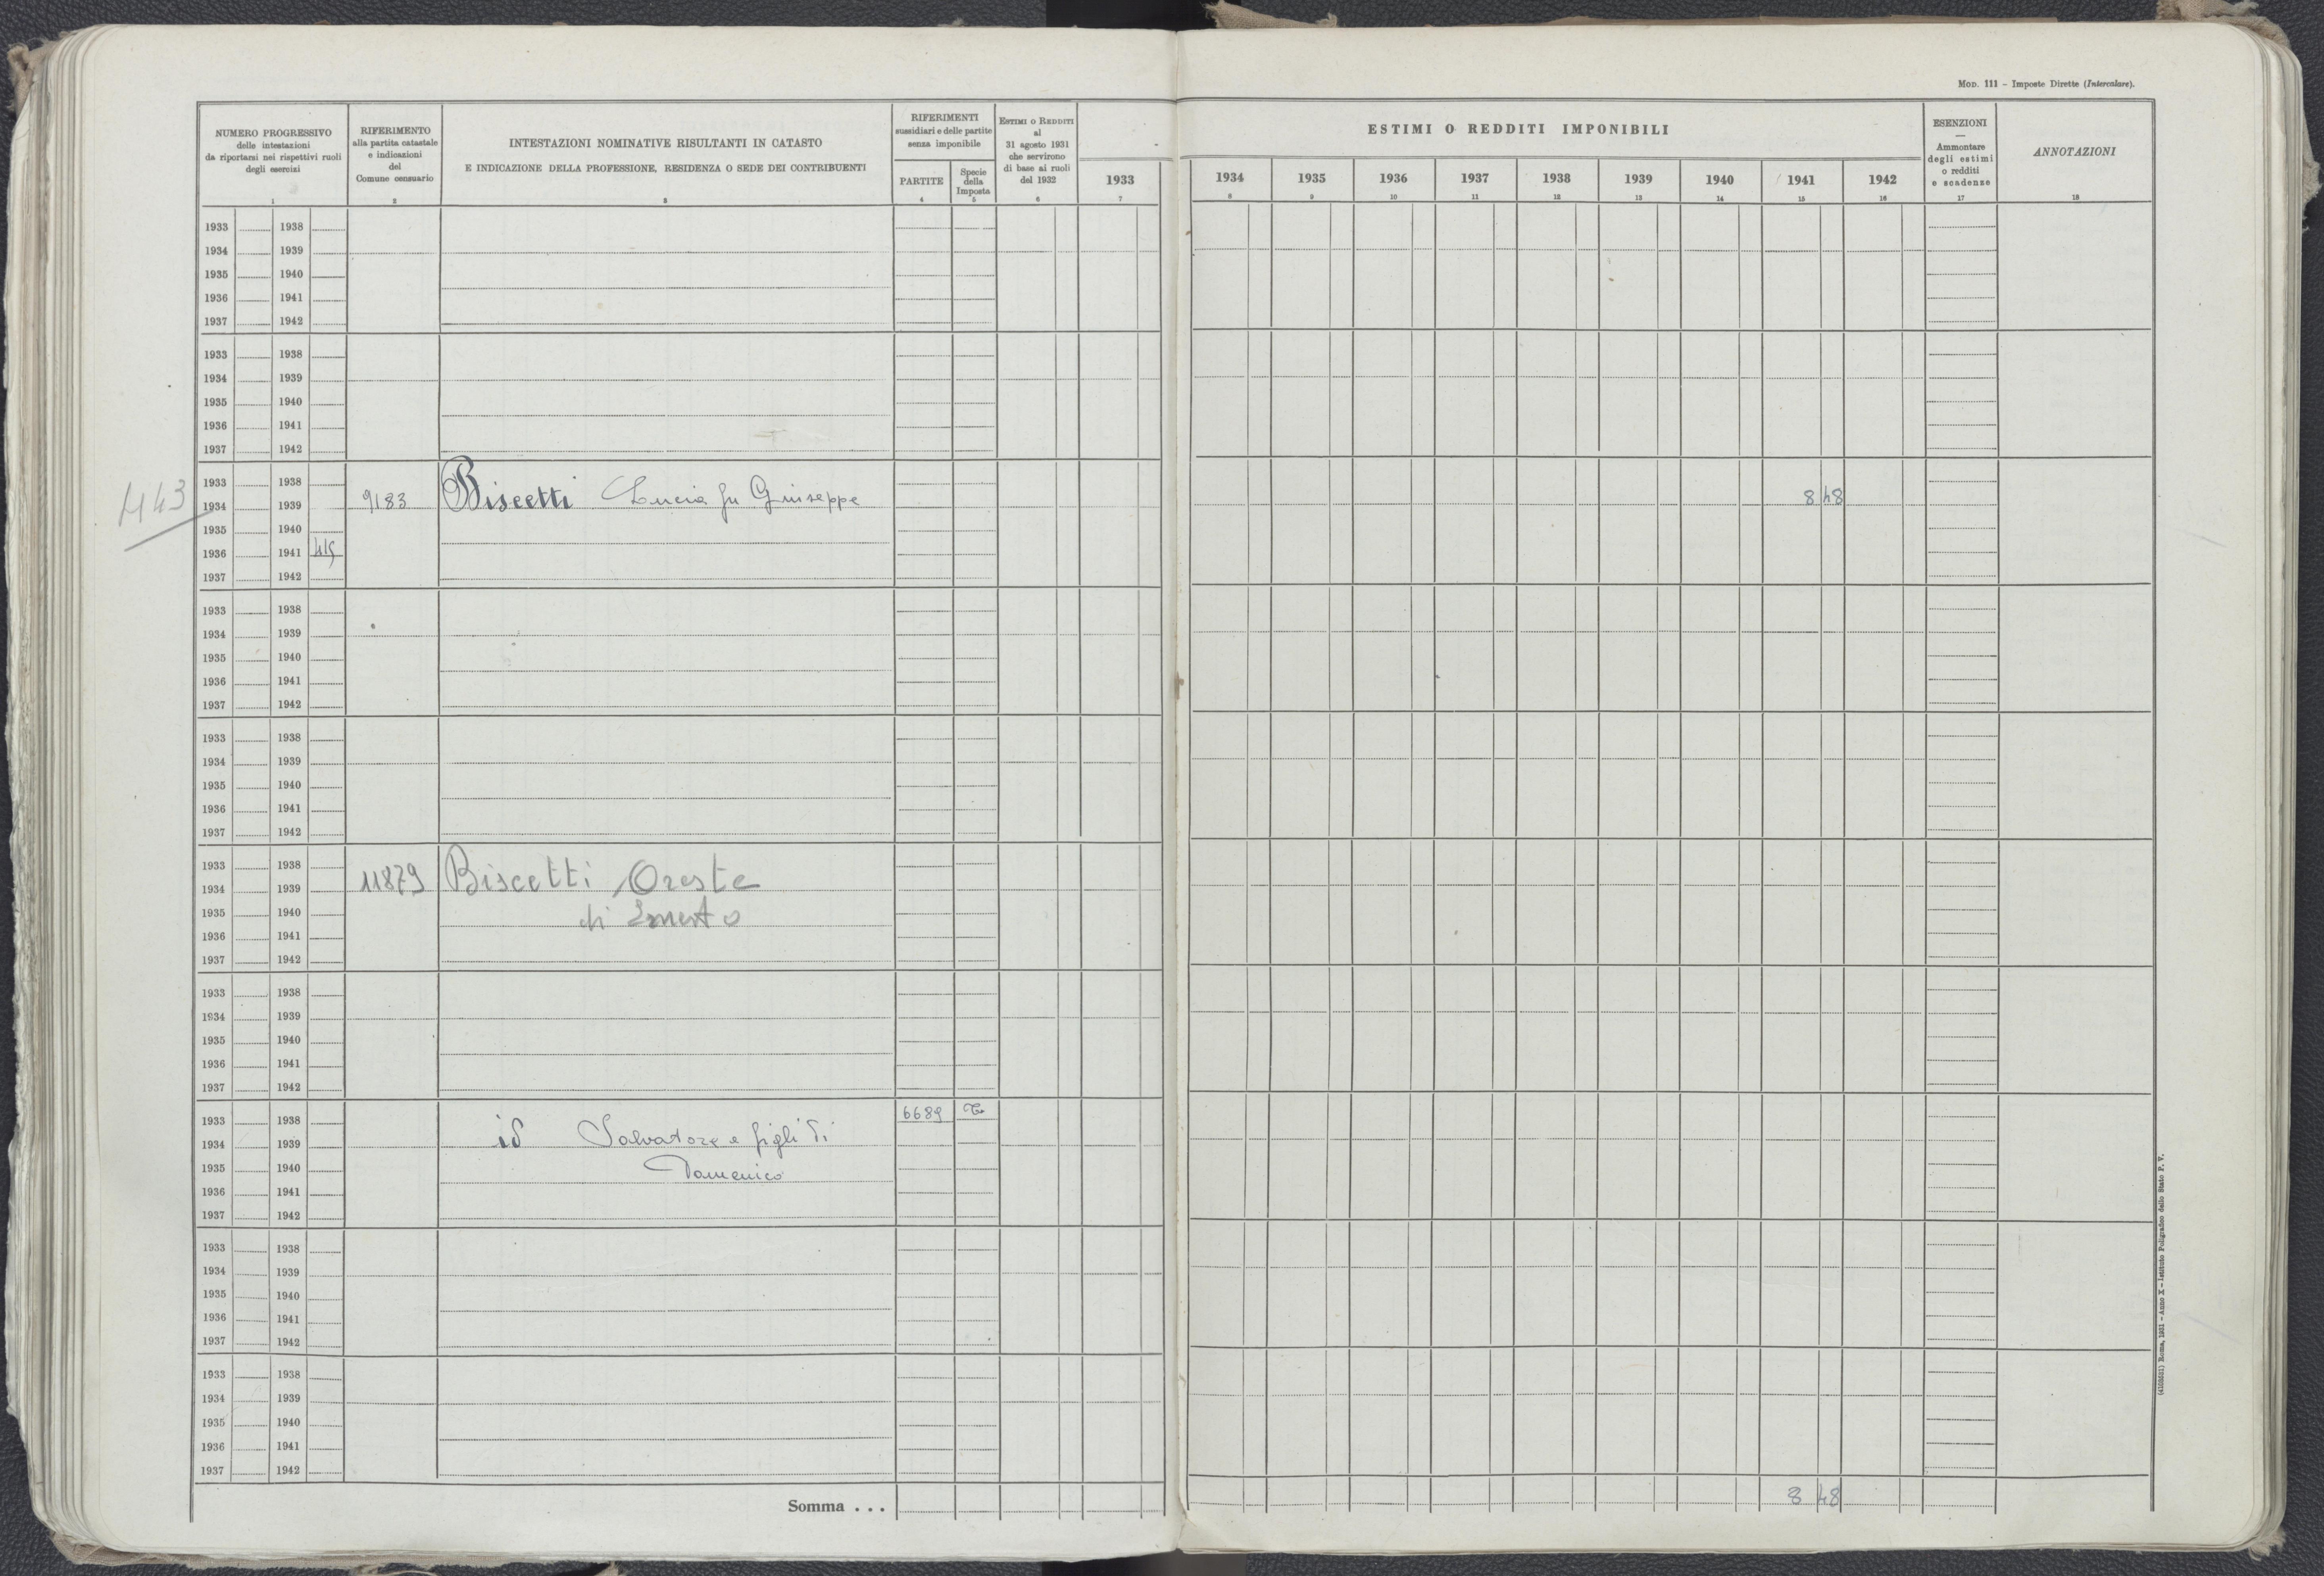 Mod. 111 – Imposte Dirette (Intercalare).
NUMERO PROGRESSIVO
delle intestazioni
da riportarsi nei rispettivi ruoli
degli esercizi
1
RIFERIMENTO
alla partita catastale
e indicazioni
del
Comune censuario
2
INTESTAZIONI NOMINATIVE RISULTANTI IN CATASTO
E INDICAZIONE DELLA PROFESSIONE, RESIDENZA O SEDE DEI CONTRIBUENTI
3
RIFERIMENTI
sussidiari e delle partite
senza imponibile
PARTITE
4
Specie
della
Imposta
5
Estimi o Redditi
al
31 agosto 1931
che servirono
di base ai ruoli
del 1932
6
ESTIMI O REDDITI IMPONIBILI
1933 1934 1935 1936 1937 1938 1939 1940 1941 1942
7 8 9 10 11 12 13 14 15 16
ESENZIONI
—
Ammontare
degli estimi
o redditi
e scadenze
17
ANNOTAZIONI
18
1933 1938
1934 1939
1935 1940
1936 1941
1937 1942
1933 1938
1934 1939
1935 1940
1936 1941
1937 1942
443
1933 1938
1934 1939 9183 Biscetti Lucia fu Giuseppe 8 48
1935 1940
1936 1941 415
1937 1942
1933 1938
1934 1939
1935 1940
1936 1941
1937 1942
1933 1938
1934 1939
1935 1940
1936 1941
1937 1942
1933 1938
1934 1939 11879 Biscetti Oreste
1935 1940 di Ernesto
1936 1941
1937 1942
1933 1938
1934 1939
1935 1940
1936 1941
1937 1942
1933 1938 6689
1934 1939 id Salvatore e figli di
1935 1940 Domenico
1936 1941
1937 1942
1933 1938
1934 1939
1935 1940
1936 1941
1937 1942
1933 1938
1934 1939
1935 1940
1936 1941
1937 1942
Somma . . . 8 48
(4105031) Roma, 1931 – Anno X – Istituto Poligrafico dello Stato P. V.